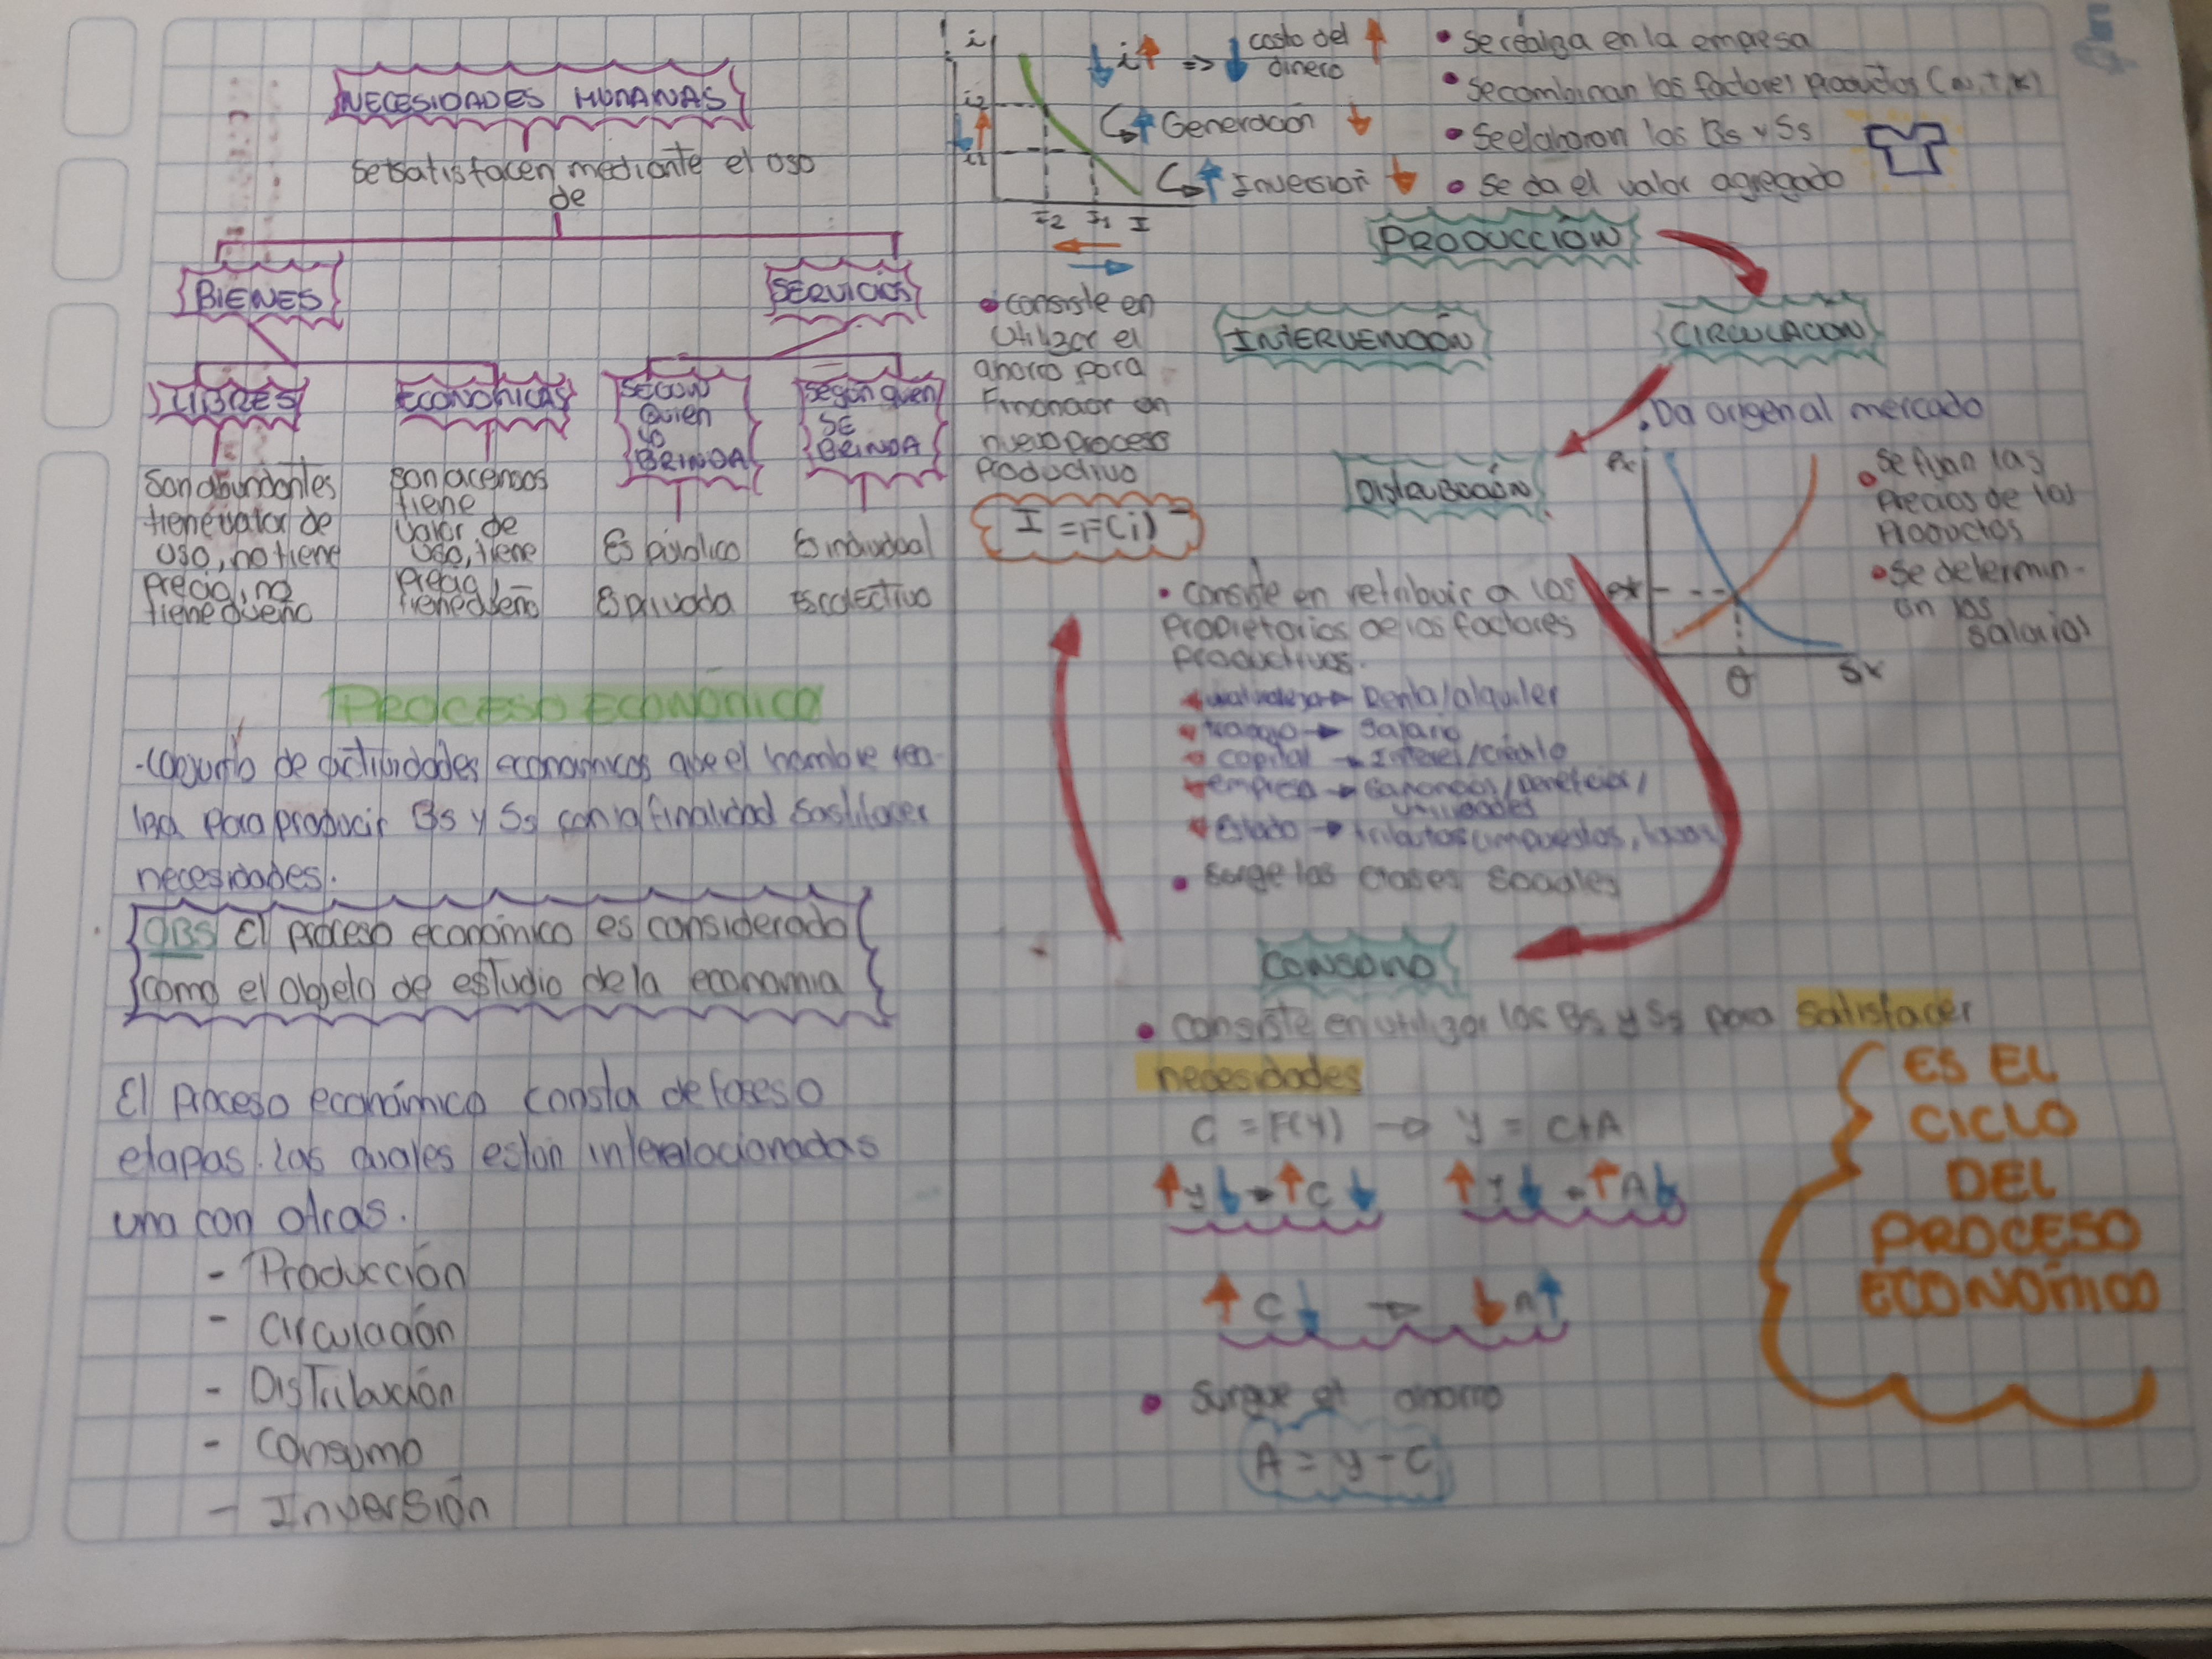 NECESIDADES HUMANAS
se satisfacen mediante el uso
de
BIENES
SERVICIOS
LIBRES
Son abundantes
tiene valor de
uso, no tiene
precio, no
tiene dueño
ECONÓMICAS
Son acemos
tiene
valor de
uso, tiene
precio
tiene dueño
SEGÚN
QUIEN
LO
BRINDA
Es público
Es privada
SEGÚN quien
SE
BRINDA
Es individual
Es colectivo
PROCESO ECONÓMICO
-Conjunto de actividades economicas que el hombre rea-
liza para producir Bs y Ss con la finalidad Satisfacer
necesidades.
OBS El proceso económico es considerado
como el objeto de estudio de la economia
El proceso económico consta de faeso
etapas. las cuales están interelacionadas
una con otras.
- Producción
- Circulación
- Distribución
- Consumo
- Inversión
i
i2
i1
I2 I1 I
i => costo del
dinero
Generación
Inversión
• Se realiza en la empresa
• Se combinan los factores productos (N, T, K)
• Se elaboran los Bs y Ss
• Se da el valor agregado
PRODUCCIÓN
• Consiste en
Utilizar el
ahorro para
Financiar un
nuevo proceso
Productivo
I = F(i)
INTERVENCION
CIRCULACION
• Da origen al mercado
Px
Px
Q
Sx
• Se fijan los
Precios de los
Productos
• Se determin-
an los
Salarios
DISTRIBUCIÓN
• Consiste en retribuir a los
Propietarios de los factores
productivos.
Renta/alquiler
Trabajo → Salario
Capital → Interes/
empresa → Ganancias/beneficios/
utilidades
Estado → tributos (impuestos,
• Surge las clases sociales
CONSUMO
• Consiste en utilizar los Bs y Ss para satisfacer
necesidades
C = F(Y) → Y = C+A
Y → C
Y → A
C → A
• Surge el ahorro
A = Y - C
ES EL
CICLO
DEL
PROCESO
ECONOMICO